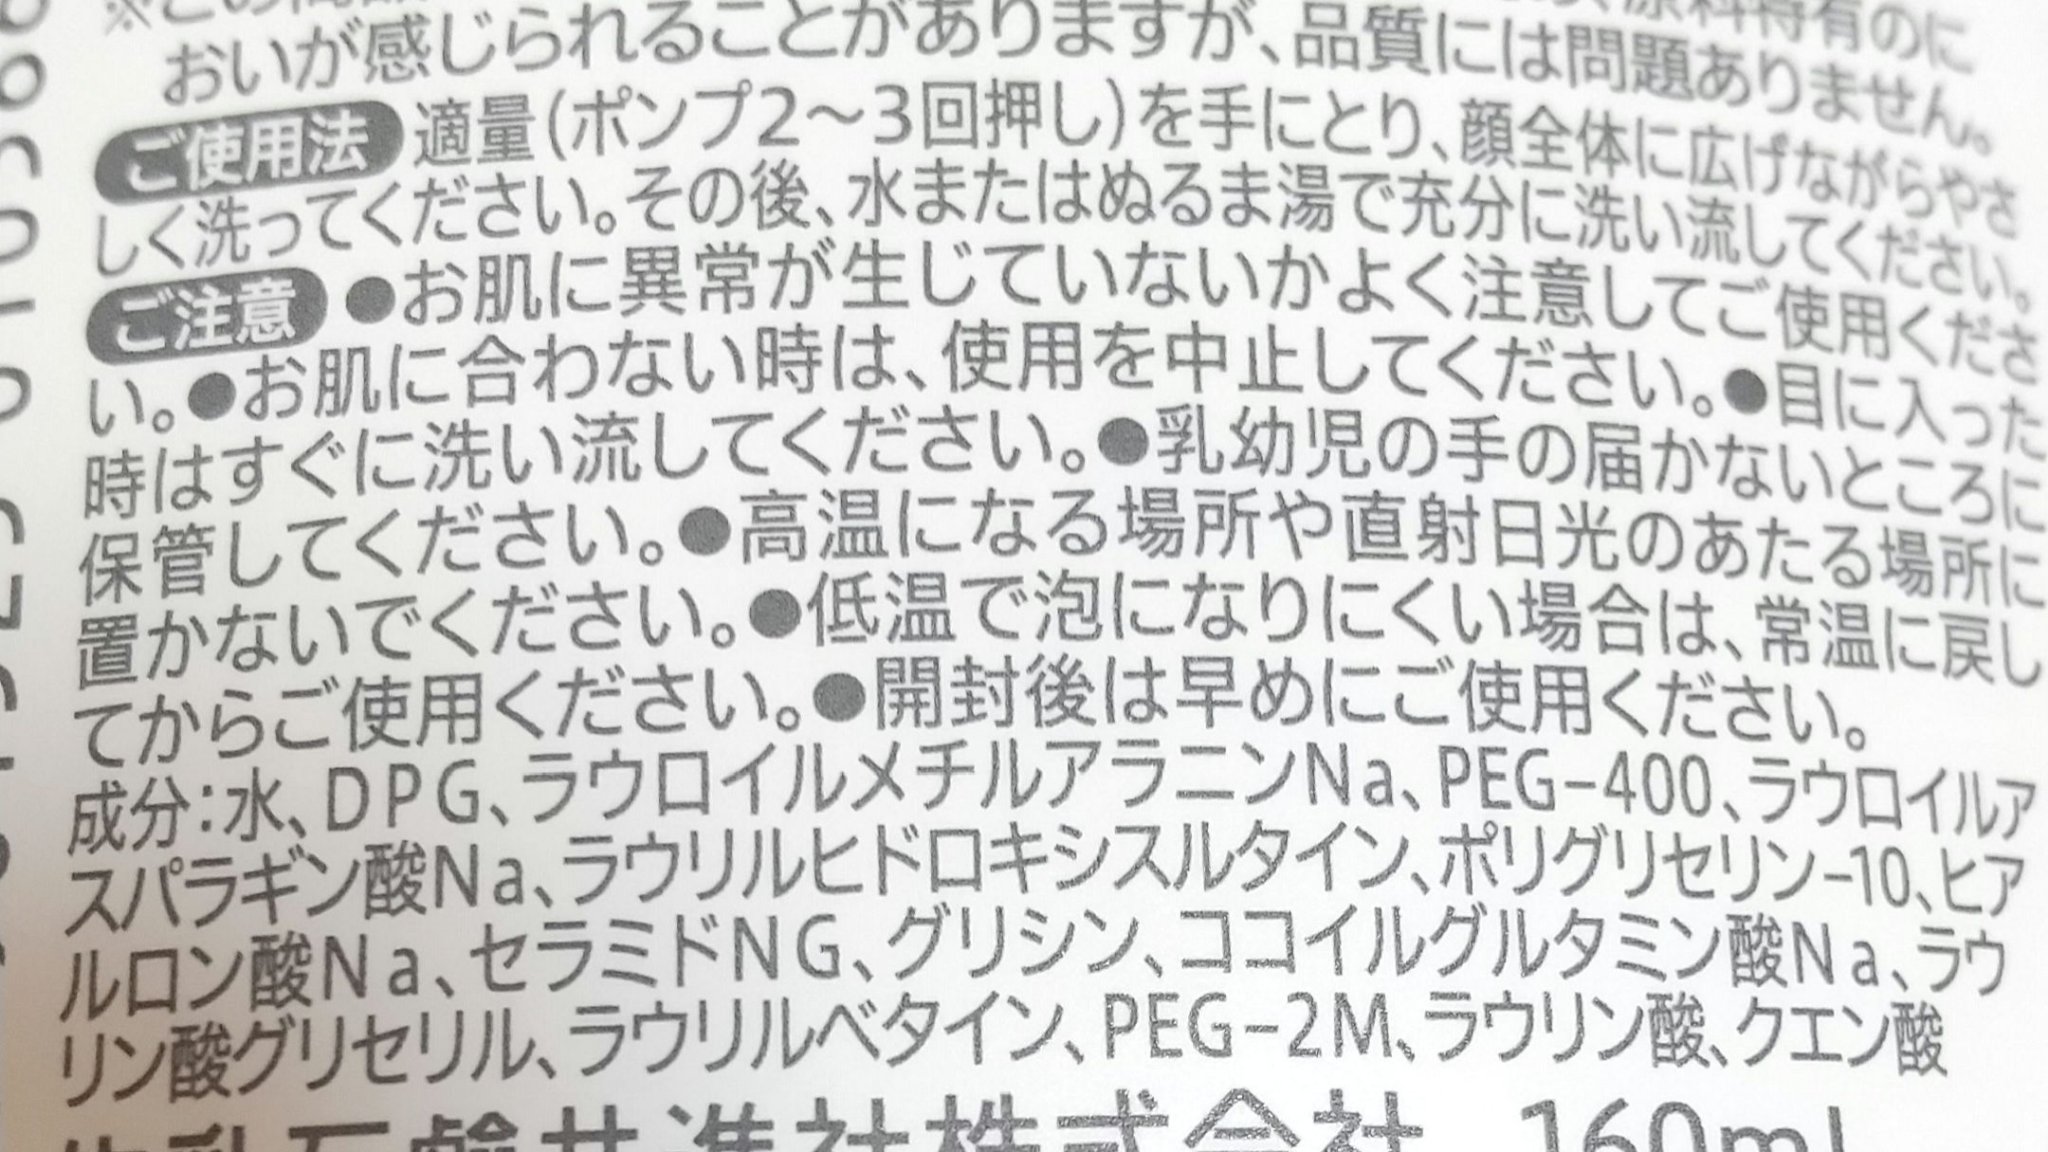 おいが感じられることがありますが、品質には問題ありません。
ご使用法 適量(ポンプ2〜3回押し)を手にとり、顔全体に広げながらやさ
しく洗ってください。その後、水またはぬるま湯で充分に洗い流してください。
ご注意 ●お肌に異常が生じていないかよく注意してご使用くださ
い。●お肌に合わない時は、使用を中止してください。●目に入った
時はすぐに洗い流してください。●乳幼児の手の届かないところに
保管してください。●高温になる場所や直射日光のあたる場所に
置かないでください。●低温で泡になりにくい場合は、常温に戻し
てからご使用ください。●開封後は早めにご使用ください。
成分:水、DPG、ラウロイルメチルアラニンNa、PEG-400、ラウロイルア
スパラギン酸Na、ラウリルヒドロキシスルタイン、ポリグリセリン-10、ヒア
ルロン酸Na、セラミドNG、グリシン、ココイルグルタミン酸Na、ラウ
リン酸グリセリル、ラウリルベタイン、PEG-2M、ラウリン酸、クエン酸
牛乳石鹸共進社株式会社 160mL